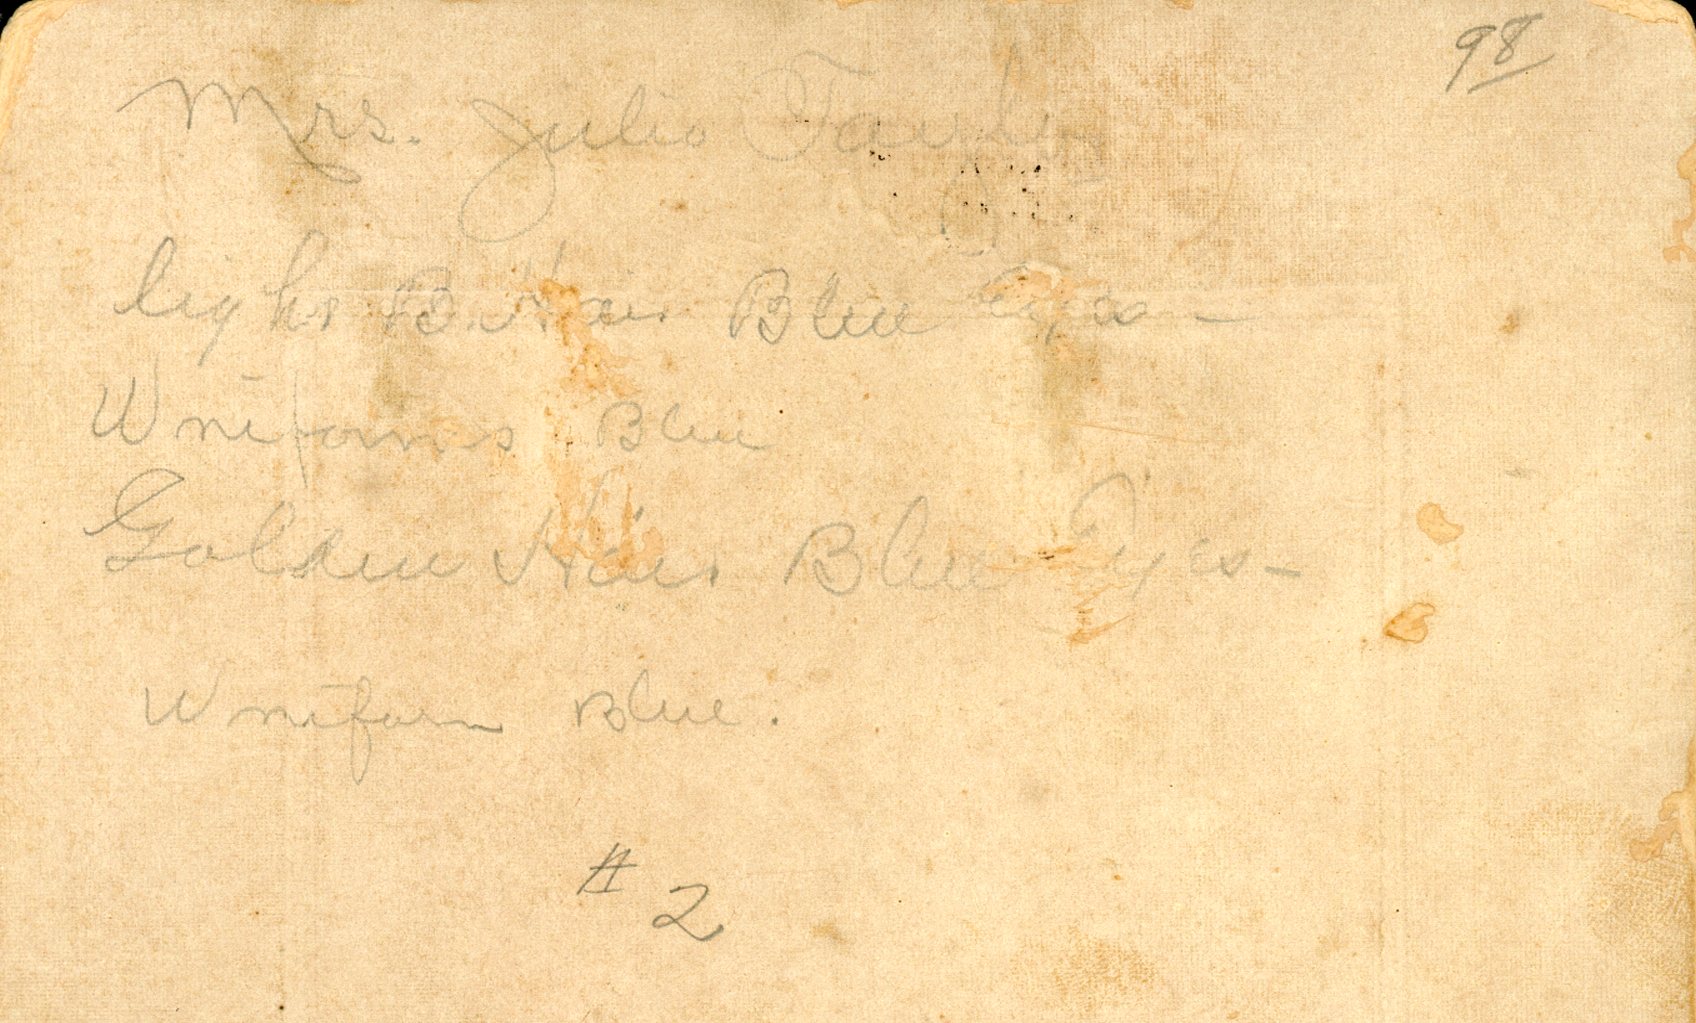 98
Mrs. Julio
light B. Hair Blue Eyes —
Uniforms Blue
Golden Hair Blue Eyes —
Uniform Blue.
# 2